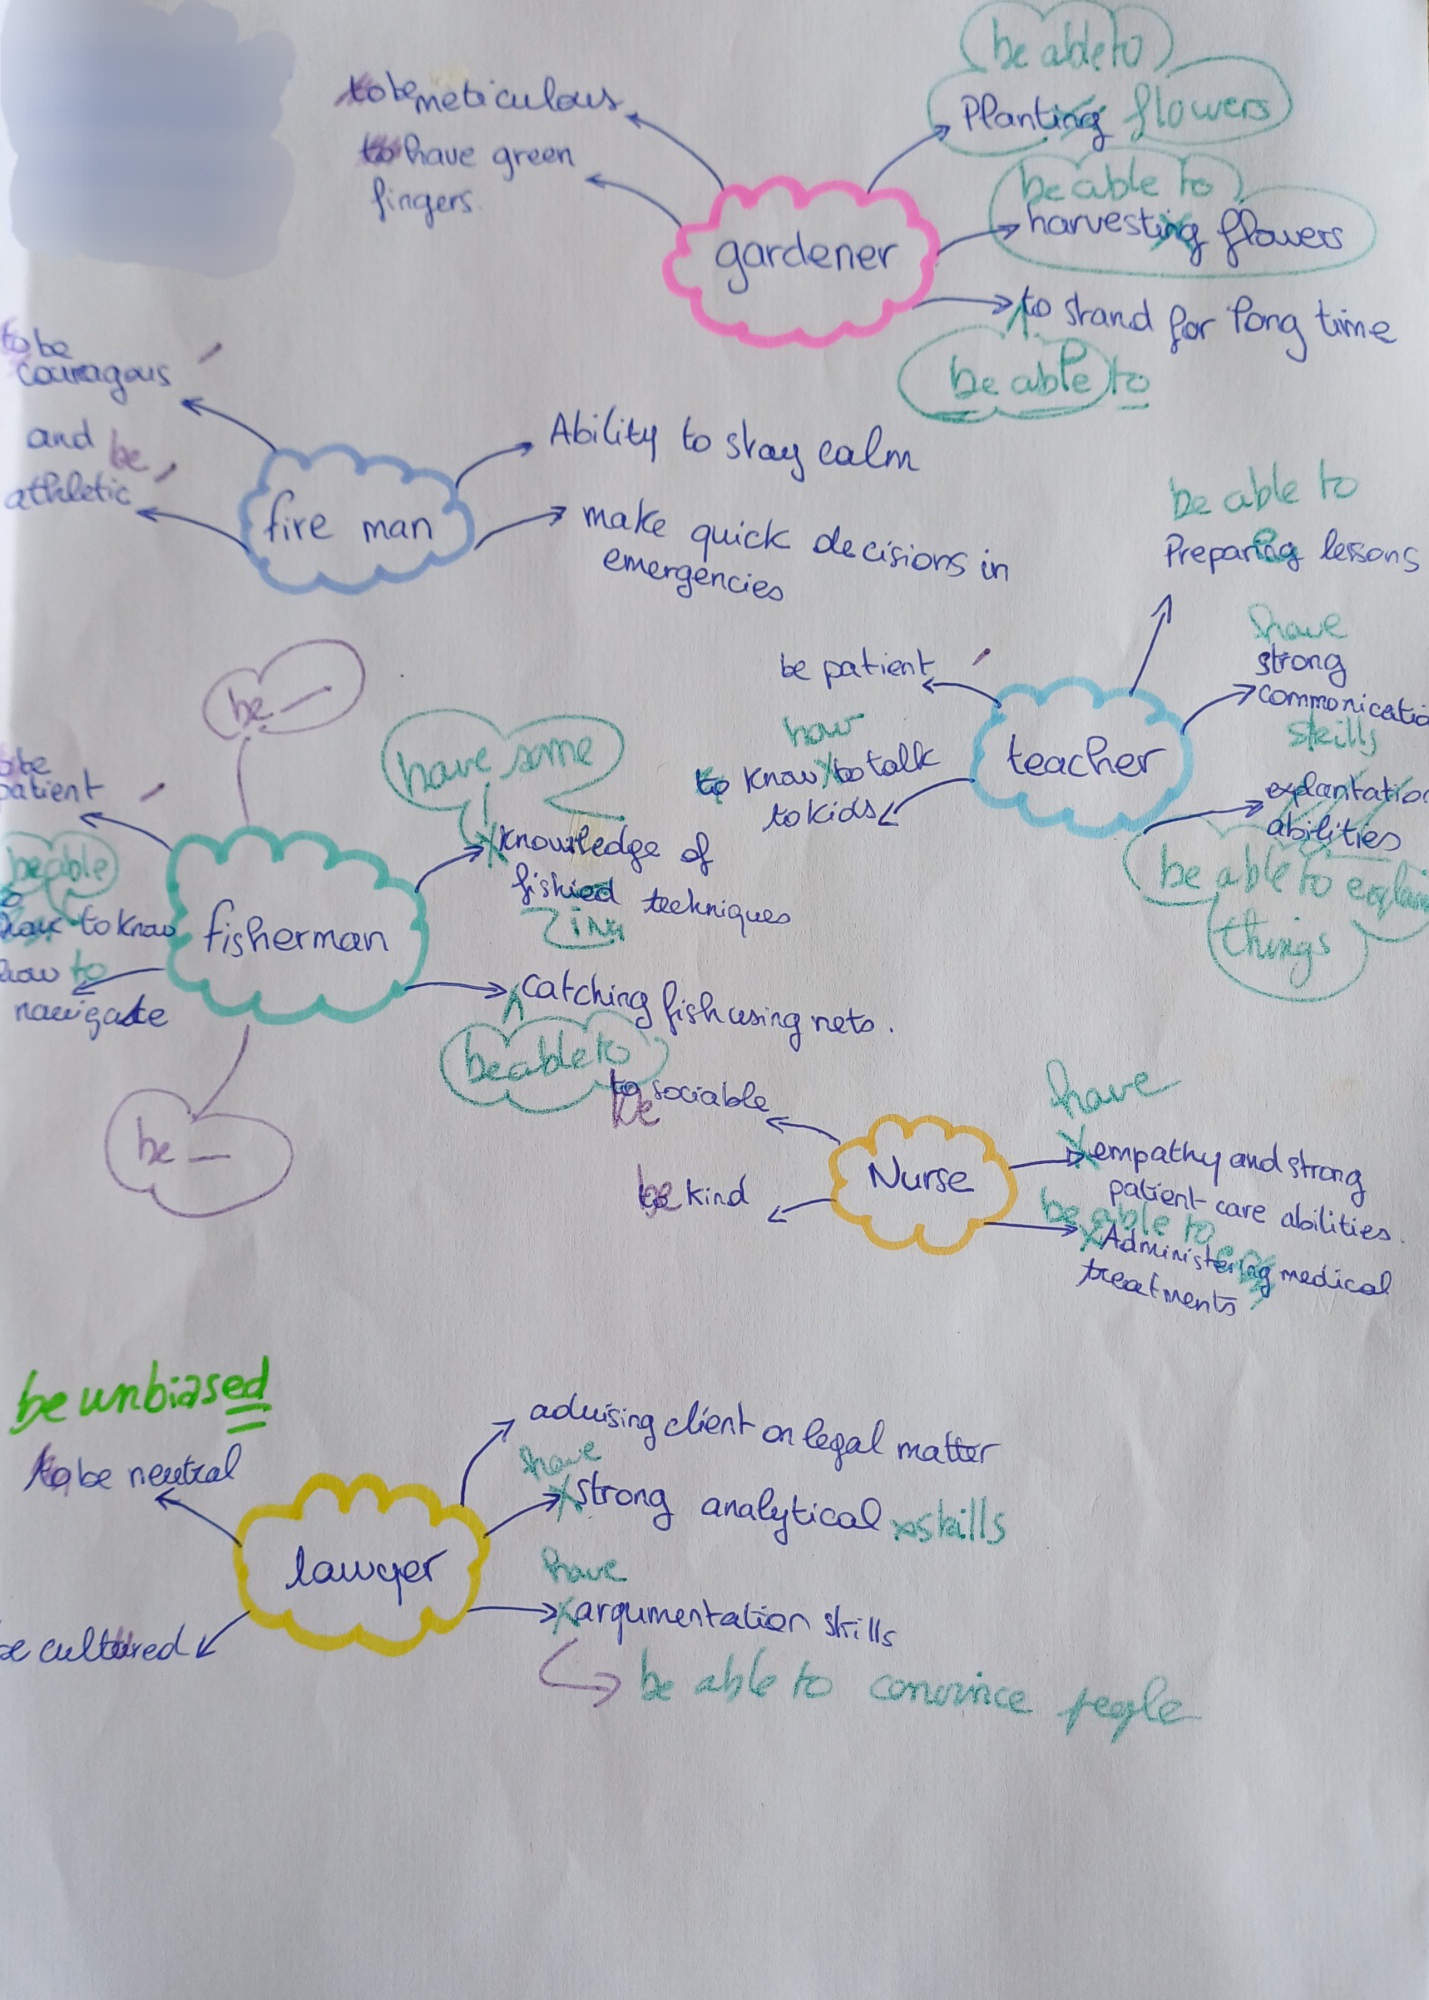 be able to
Planting flowers
to be meticulous
to have green
fingers.
be able to
harvesting flowers
gardener
to stand for long time
be able to
to be
couragous
and be
athletic
fire man
Ability to stay calm
make quick decisions in
emergencies
be able to
Preparing lessons
have
strong
commonicatio
skills
be patient
how
to know to talk
to kids
teacher
explantation
abilities
be able to explain
things
be
to be
patient
be able
to know
how to
navigate
fisherman
have some
knowledge of
fishied techniques
ing
catching fish using nets.
be able to
be
to sociable
be
be kind
Nurse
have
empathy and strong
patient-care abilities.
be able to
Administering medical
treatments
be unbiased
to be neutral
be cultured
lawyer
advising client on legal matter
have
strong analytical skills
have
argumentation skills
be able to convince people